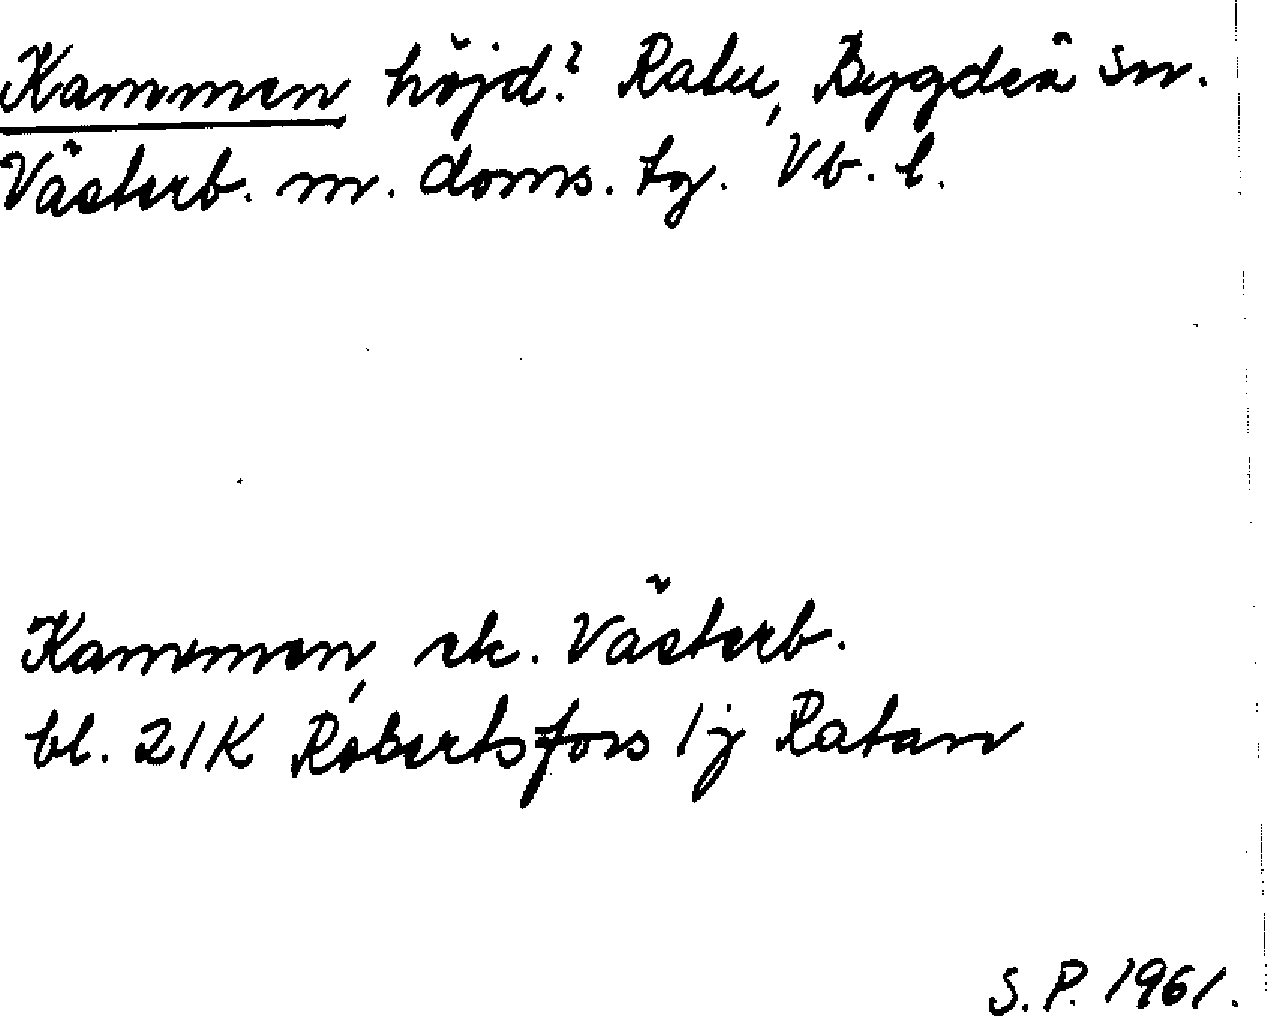 Kammen höjd? Ratu, Bygdeå sn.
Västerb. m. doms. tg. Vb. l.
Kammen, ek. Västerb.
bl. 21K Robertsfors 1j Ratan
S.P. 1961.